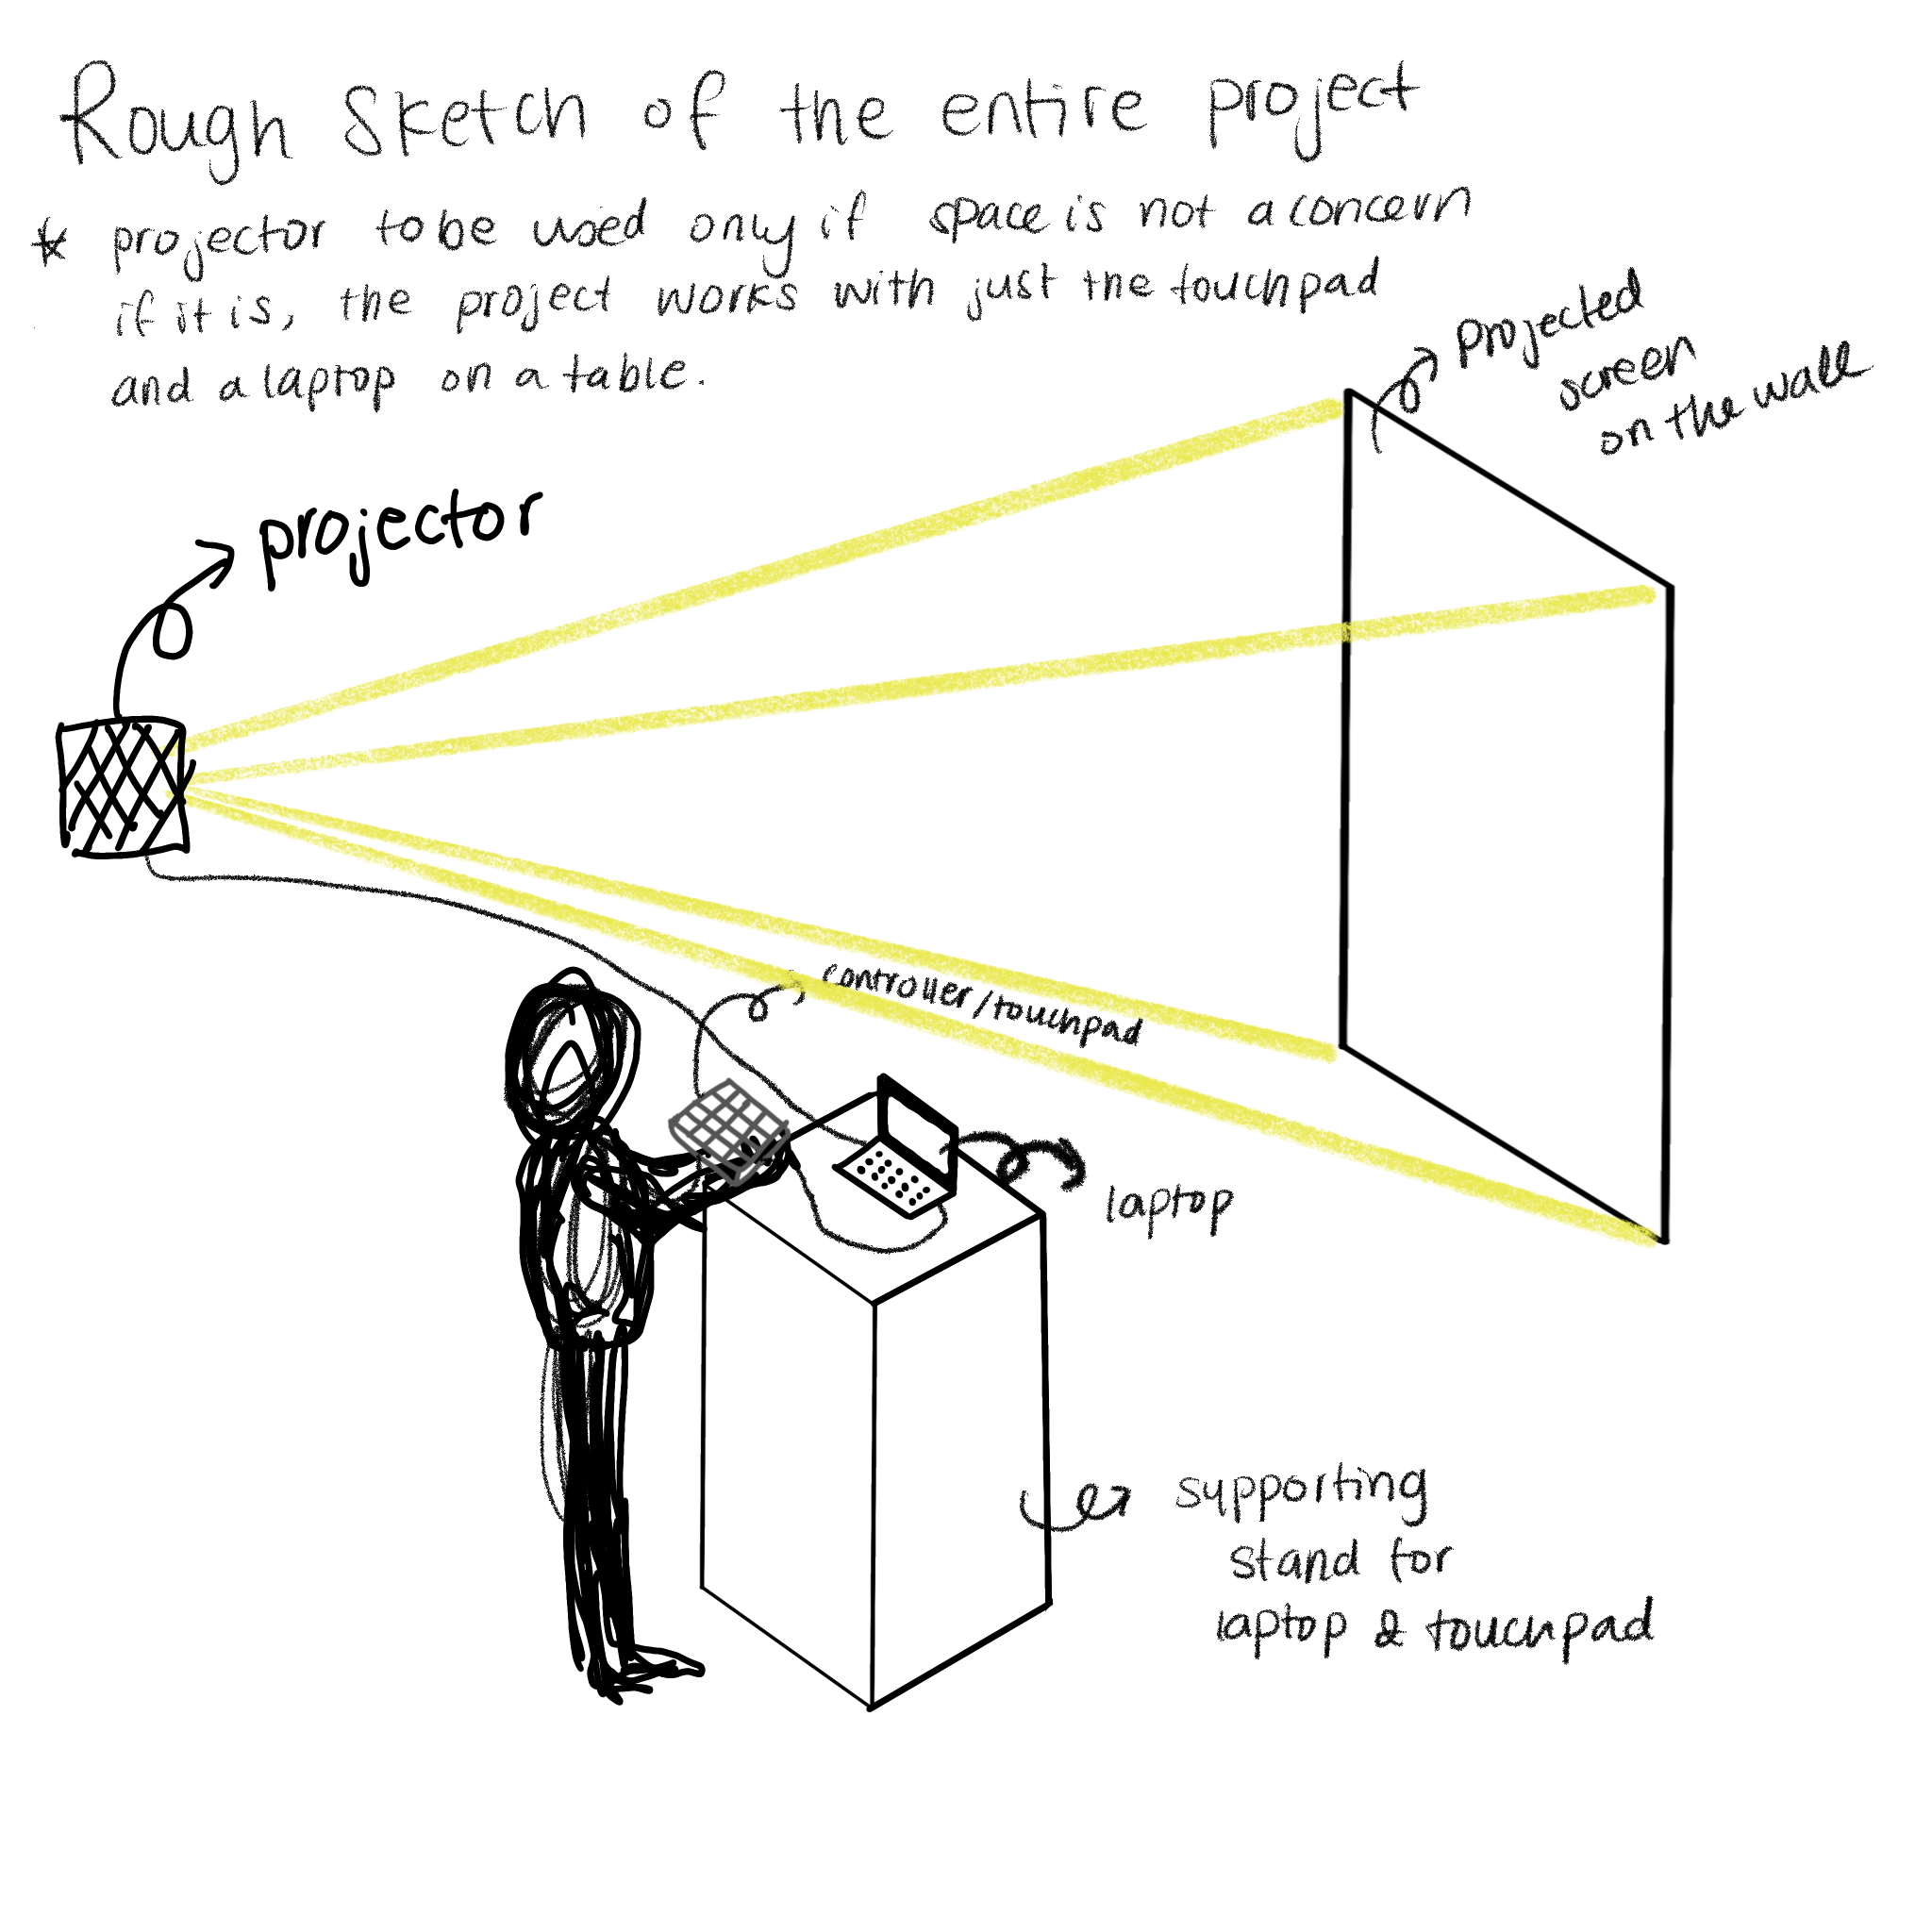 Rough Sketch of the entire project
* projector to be used only if space is not a concern
if it is, the project works with just the touchpad
and a laptop on a table.
projected
screen
on the wall
projector
controller/touchpad
laptop
supporting
stand for
laptop & touchpad